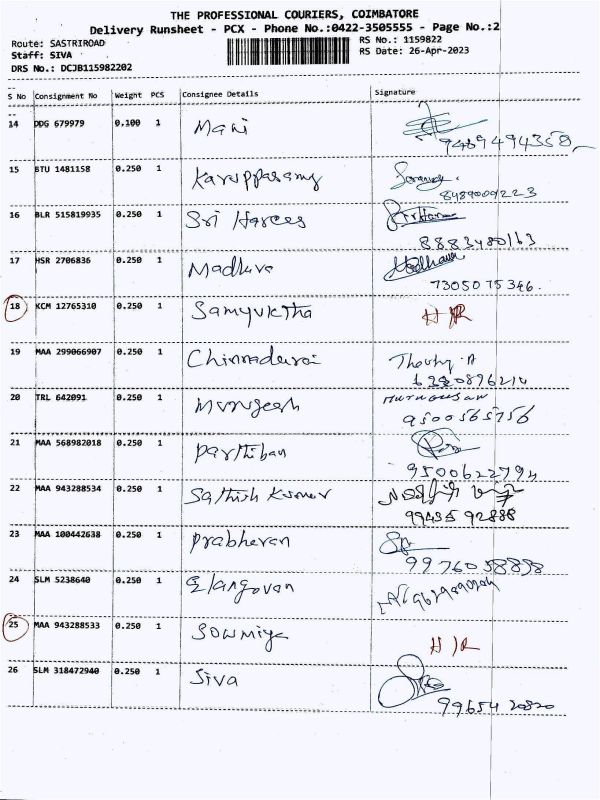 THE PROFESSIONAL COURIERS, COIMBATORE
Delivery Runsheet - PCX - Phone No.:0422-3505555 - Page No.:2
Route: SASTRIROAD RS No.: 1159822
Staff: SIVA RS Date: 26-Apr-2023
DRS No.: DCJB115982202
S No Consignment No Weight PCS Consignee Details Signature
14 DDG 679979 0.100 1 Mani
9489494358
15 BTU 1481158 0.250 1 Karuppasamy
8489009223
16 BLR 515819935 0.250 1 Sri Harees
8883480163
17 HSR 2706836 0.250 1 Madhuva Madhava
7305075346.
18 KCM 12765310 0.250 1 Samyuktha
19 MAA 299066907 0.250 1 Chinnadurai
20 TRL 642091 0.250 1 Murugesh
9500565756
21 MAA 568982018 0.250 1 Parthiban
9500622794
22 MAA 943288534 0.250 1 Sathish Kumar
99435 92888
23 MAA 100442638 0.250 1 Prabhavan
9976058898
24 SLM 5238640 0.250 1 Elangovan
25 MAA 943288533 0.250 1 Sowmiya
26 SLM 318472940 0.250 1 Siva
9965420820